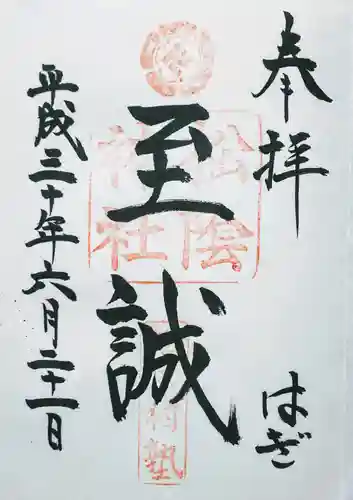 奉拝
はぎ
至誠
松陰
神社
平成三十年六月二十一日